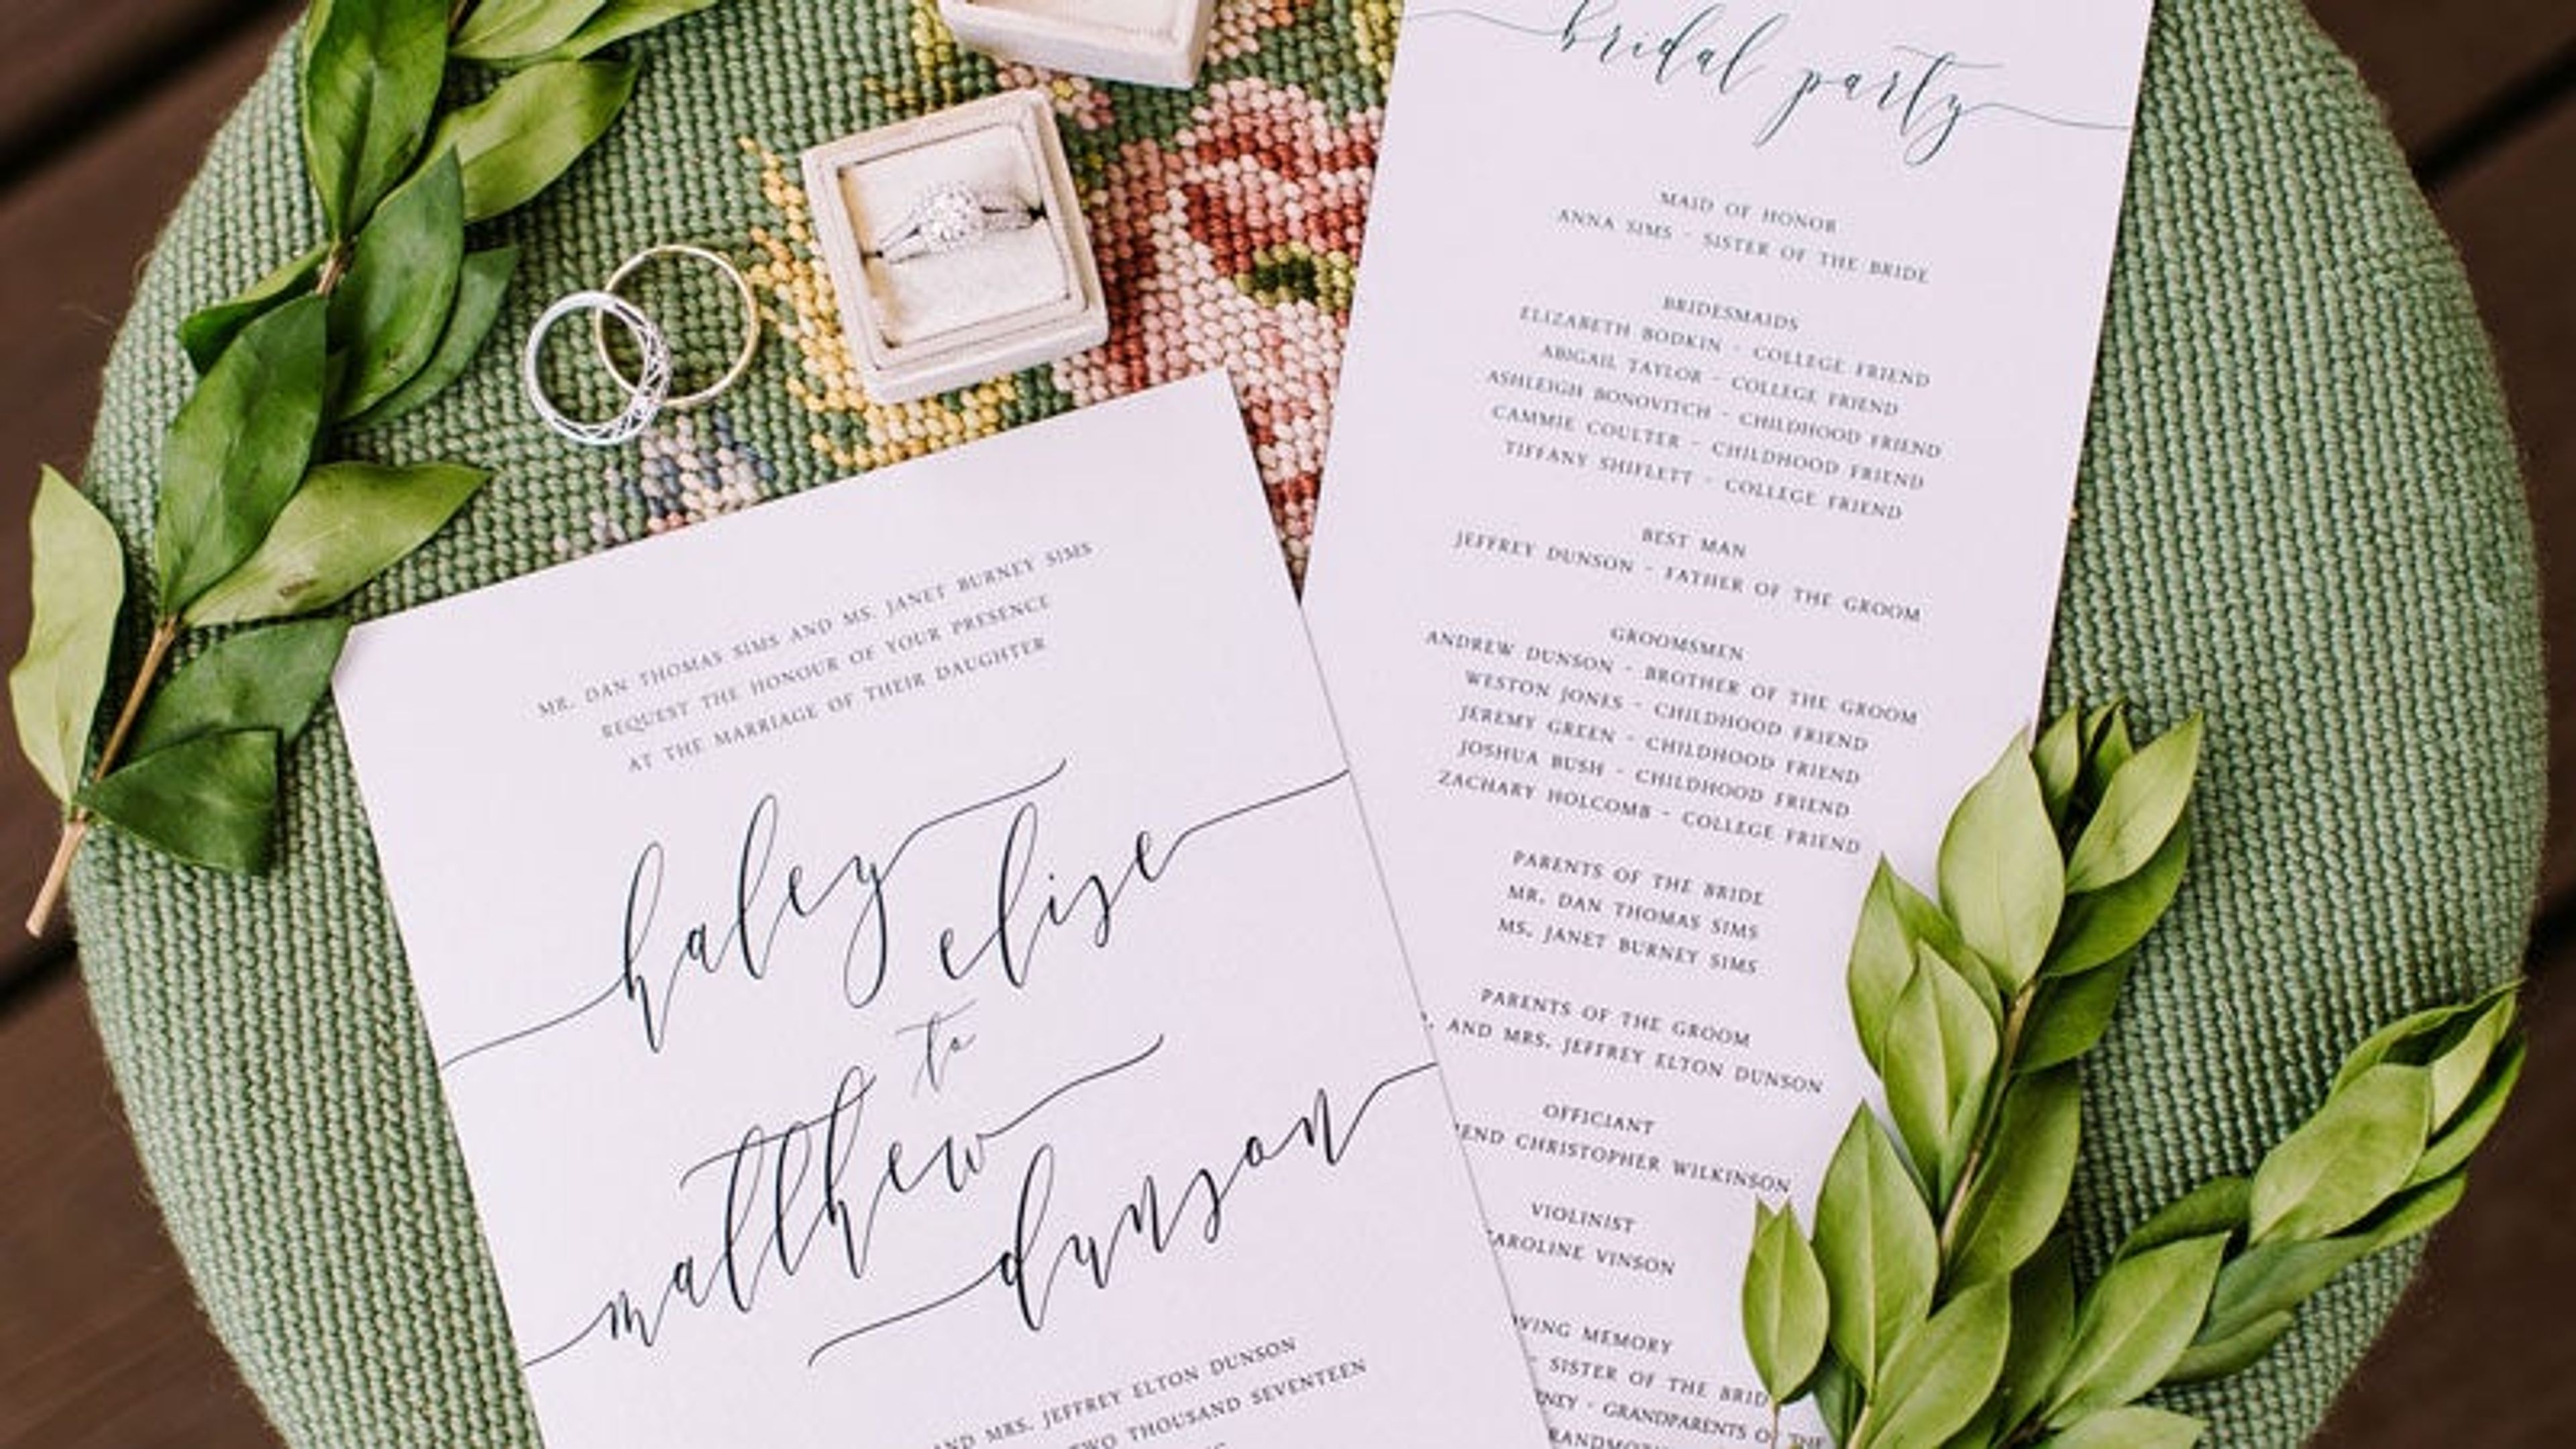 MR. DAN THOMAS SIMS AND MS. JANET BURNEY SIMS
REQUEST THE HONOUR OF YOUR PRESENCE
AT THE MARRIAGE OF THEIR DAUGHTER
haley
elise
to
matthew
dunson
AND MRS. JEFFREY ELTON DUNSON
TWO THOUSAND SEVENTEEN
bridal party
MAID OF HONOR
ANNA SIMS - SISTER OF THE BRIDE
BRIDESMAIDS
ELIZABETH BODKIN - COLLEGE FRIEND
ABIGAIL TAYLOR - COLLEGE FRIEND
ASHLEIGH BONOVITCH - CHILDHOOD FRIEND
CAMMIE COULTER - CHILDHOOD FRIEND
TIFFANY SHIFLETT - COLLEGE FRIEND
BEST MAN
JEFFREY DUNSON - FATHER OF THE GROOM
GROOMSMEN
ANDREW DUNSON - BROTHER OF THE GROOM
WESTON JONES - CHILDHOOD FRIEND
JEREMY GREEN - CHILDHOOD FRIEND
JOSHUA BUSH - CHILDHOOD FRIEND
ZACHARY HOLCOMB - COLLEGE FRIEND
PARENTS OF THE BRIDE
MR. DAN THOMAS SIMS
MS. JANET BURNEY SIMS
PARENTS OF THE GROOM
AND MRS. JEFFREY ELTON DUNSON
OFFICIANT
CHRISTOPHER WILKINSON
VIOLINIST
CAROLINE VINSON
MEMORY
- SISTER OF THE BRID
- GRANDPARENTS OF THE